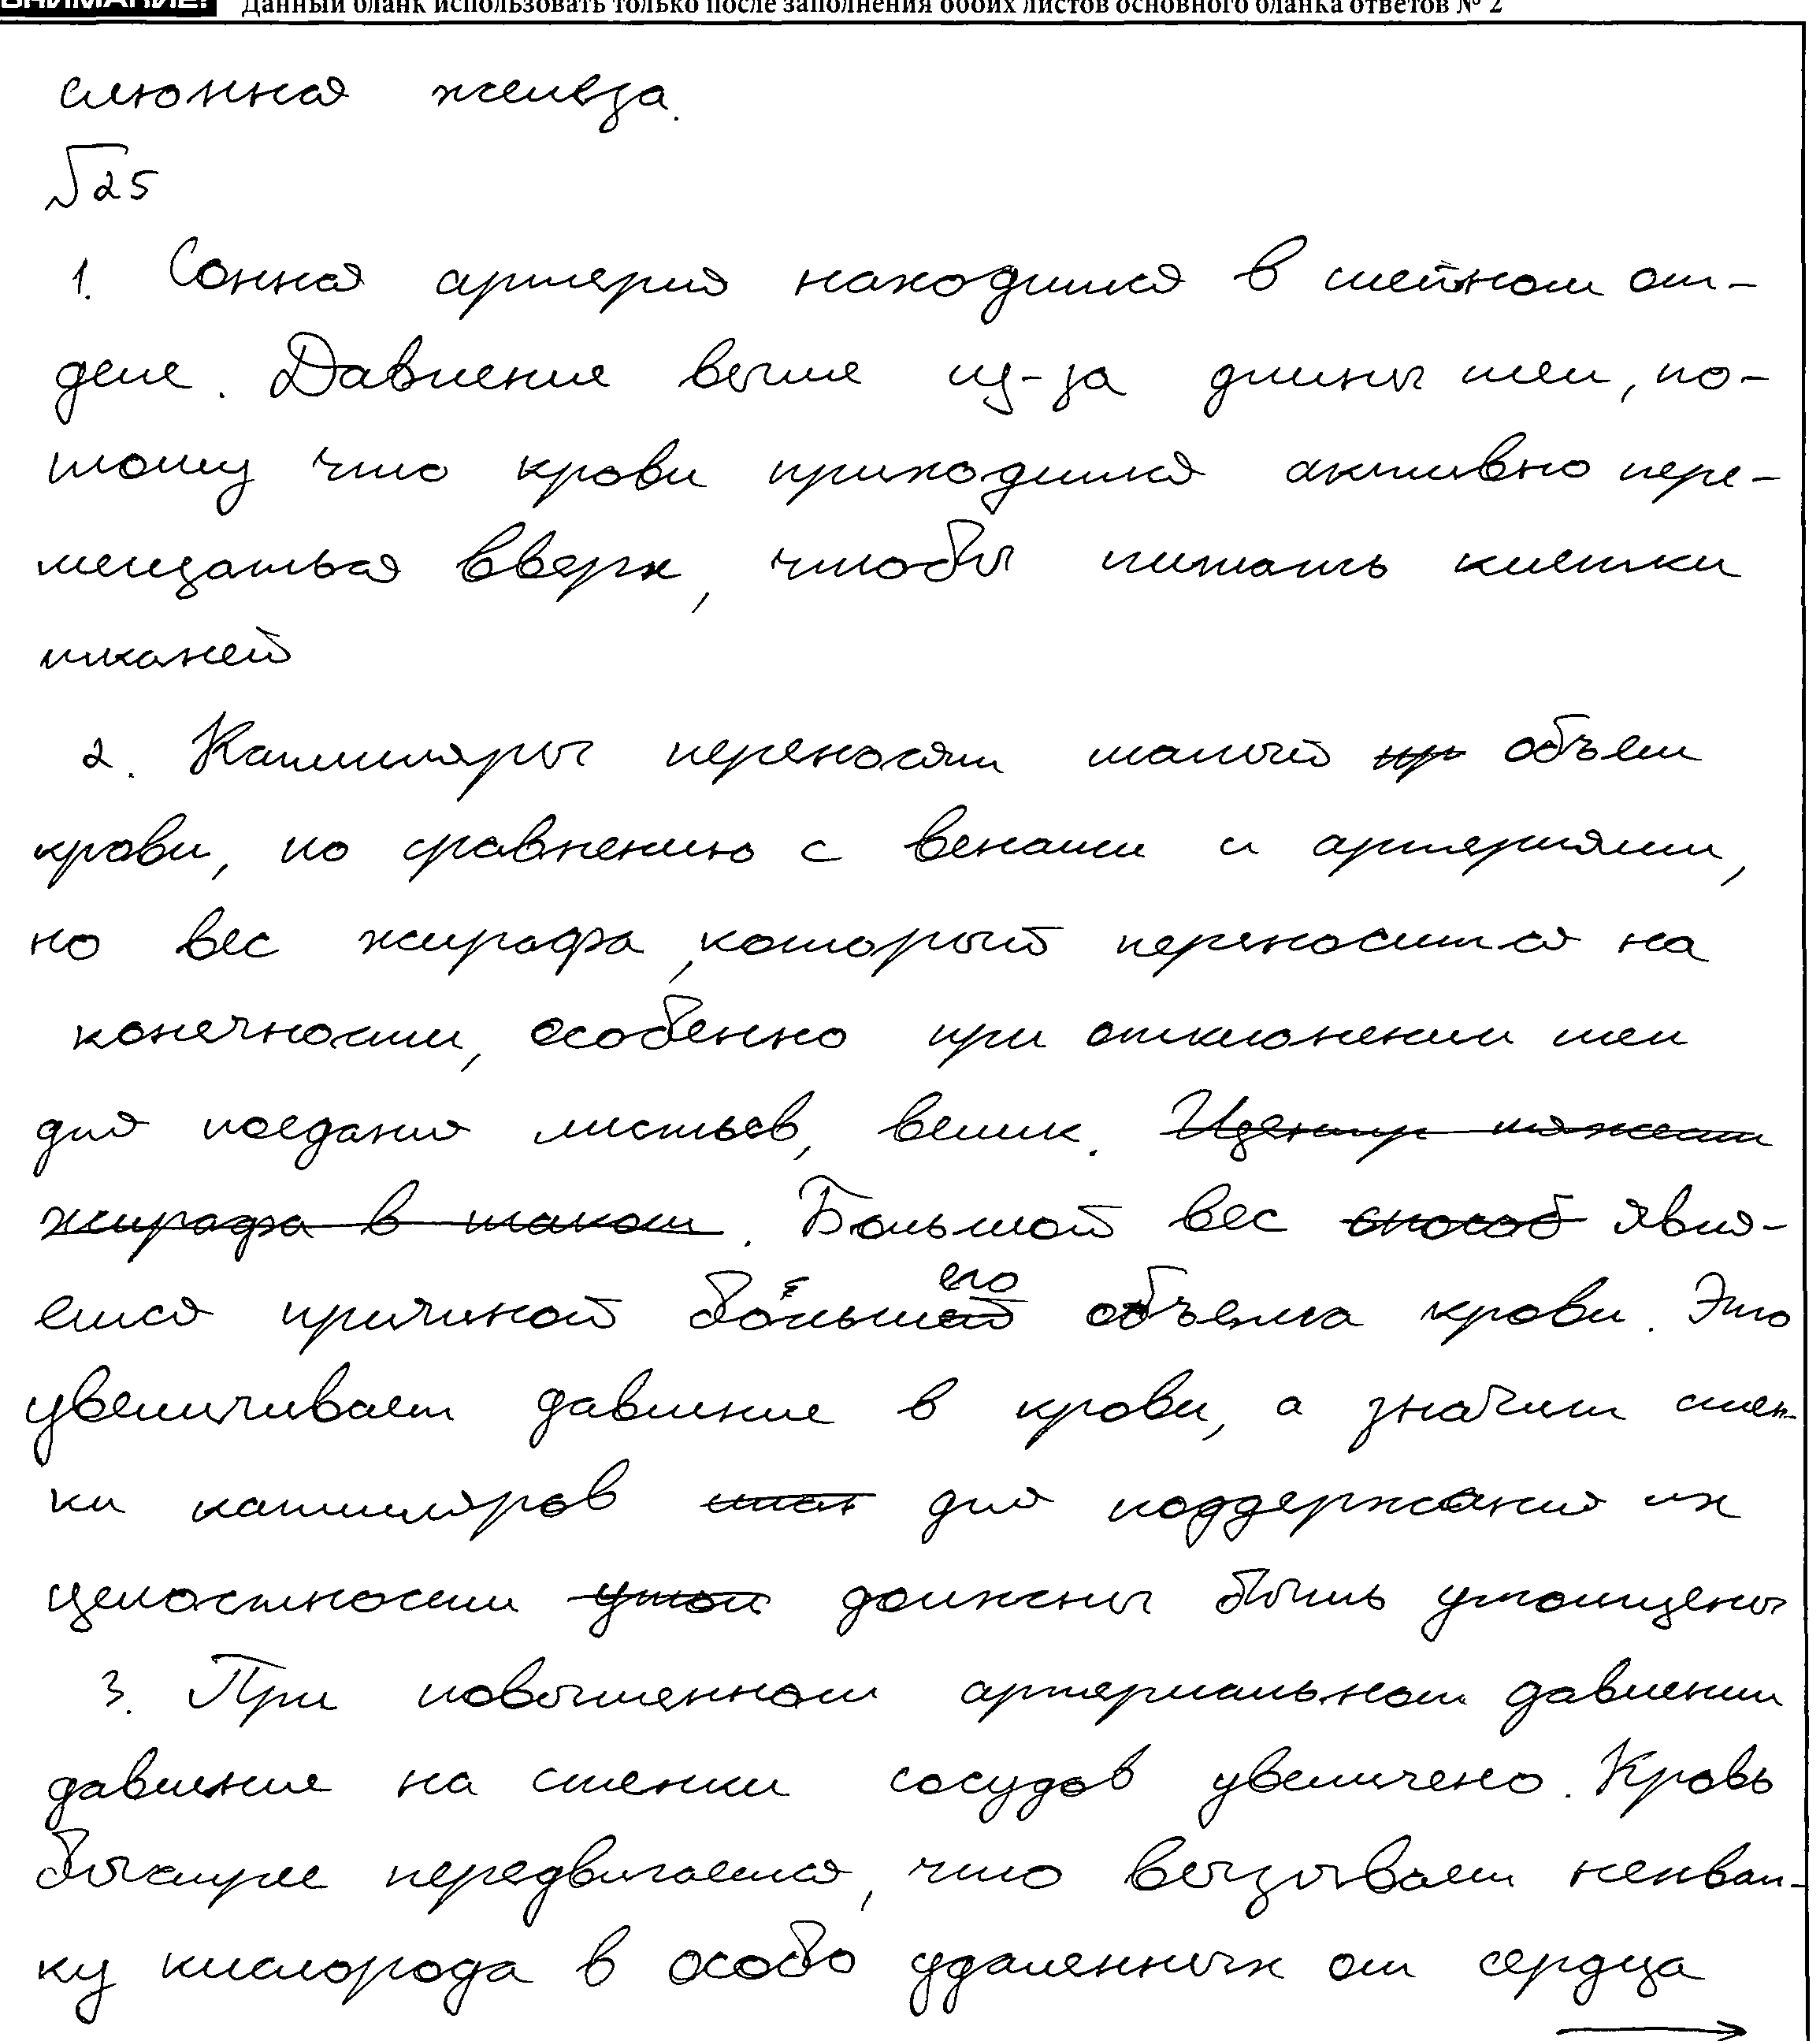 ВНИМАНИЕ! Данный бланк использовать только после заполнения обоих листов основного бланка ответов № 2
слюнная железа.
√25
1. Сонная артерия находится в шейном от-
деле. Давление выше из-за длины шеи, по-
тому что крови приходится активно пере-
мещаться вверх, чтобы питать клетки
тканей
2. Капилляры переносят малый пр объем
крови, по сравнению с венами и артериями,
но вес жирафа, который переносится на
конечности, особенно при отклонении шеи
для поедания листьев, велик. И центр тяжест
жирафа в таком. Большой вес способ явля-
ется причиной большего объема крови. Это
увеличивает давление в крови, а значит стен-
ки капилляров для поддержания их
целостности утол должны быть утолщены
3. При повышенном артериальном давлении
давление на стенки сосудов увеличено. Кровь
быстрее передвигается, что вызывает нехват-
ку кислорода в особо удаленных от сердца